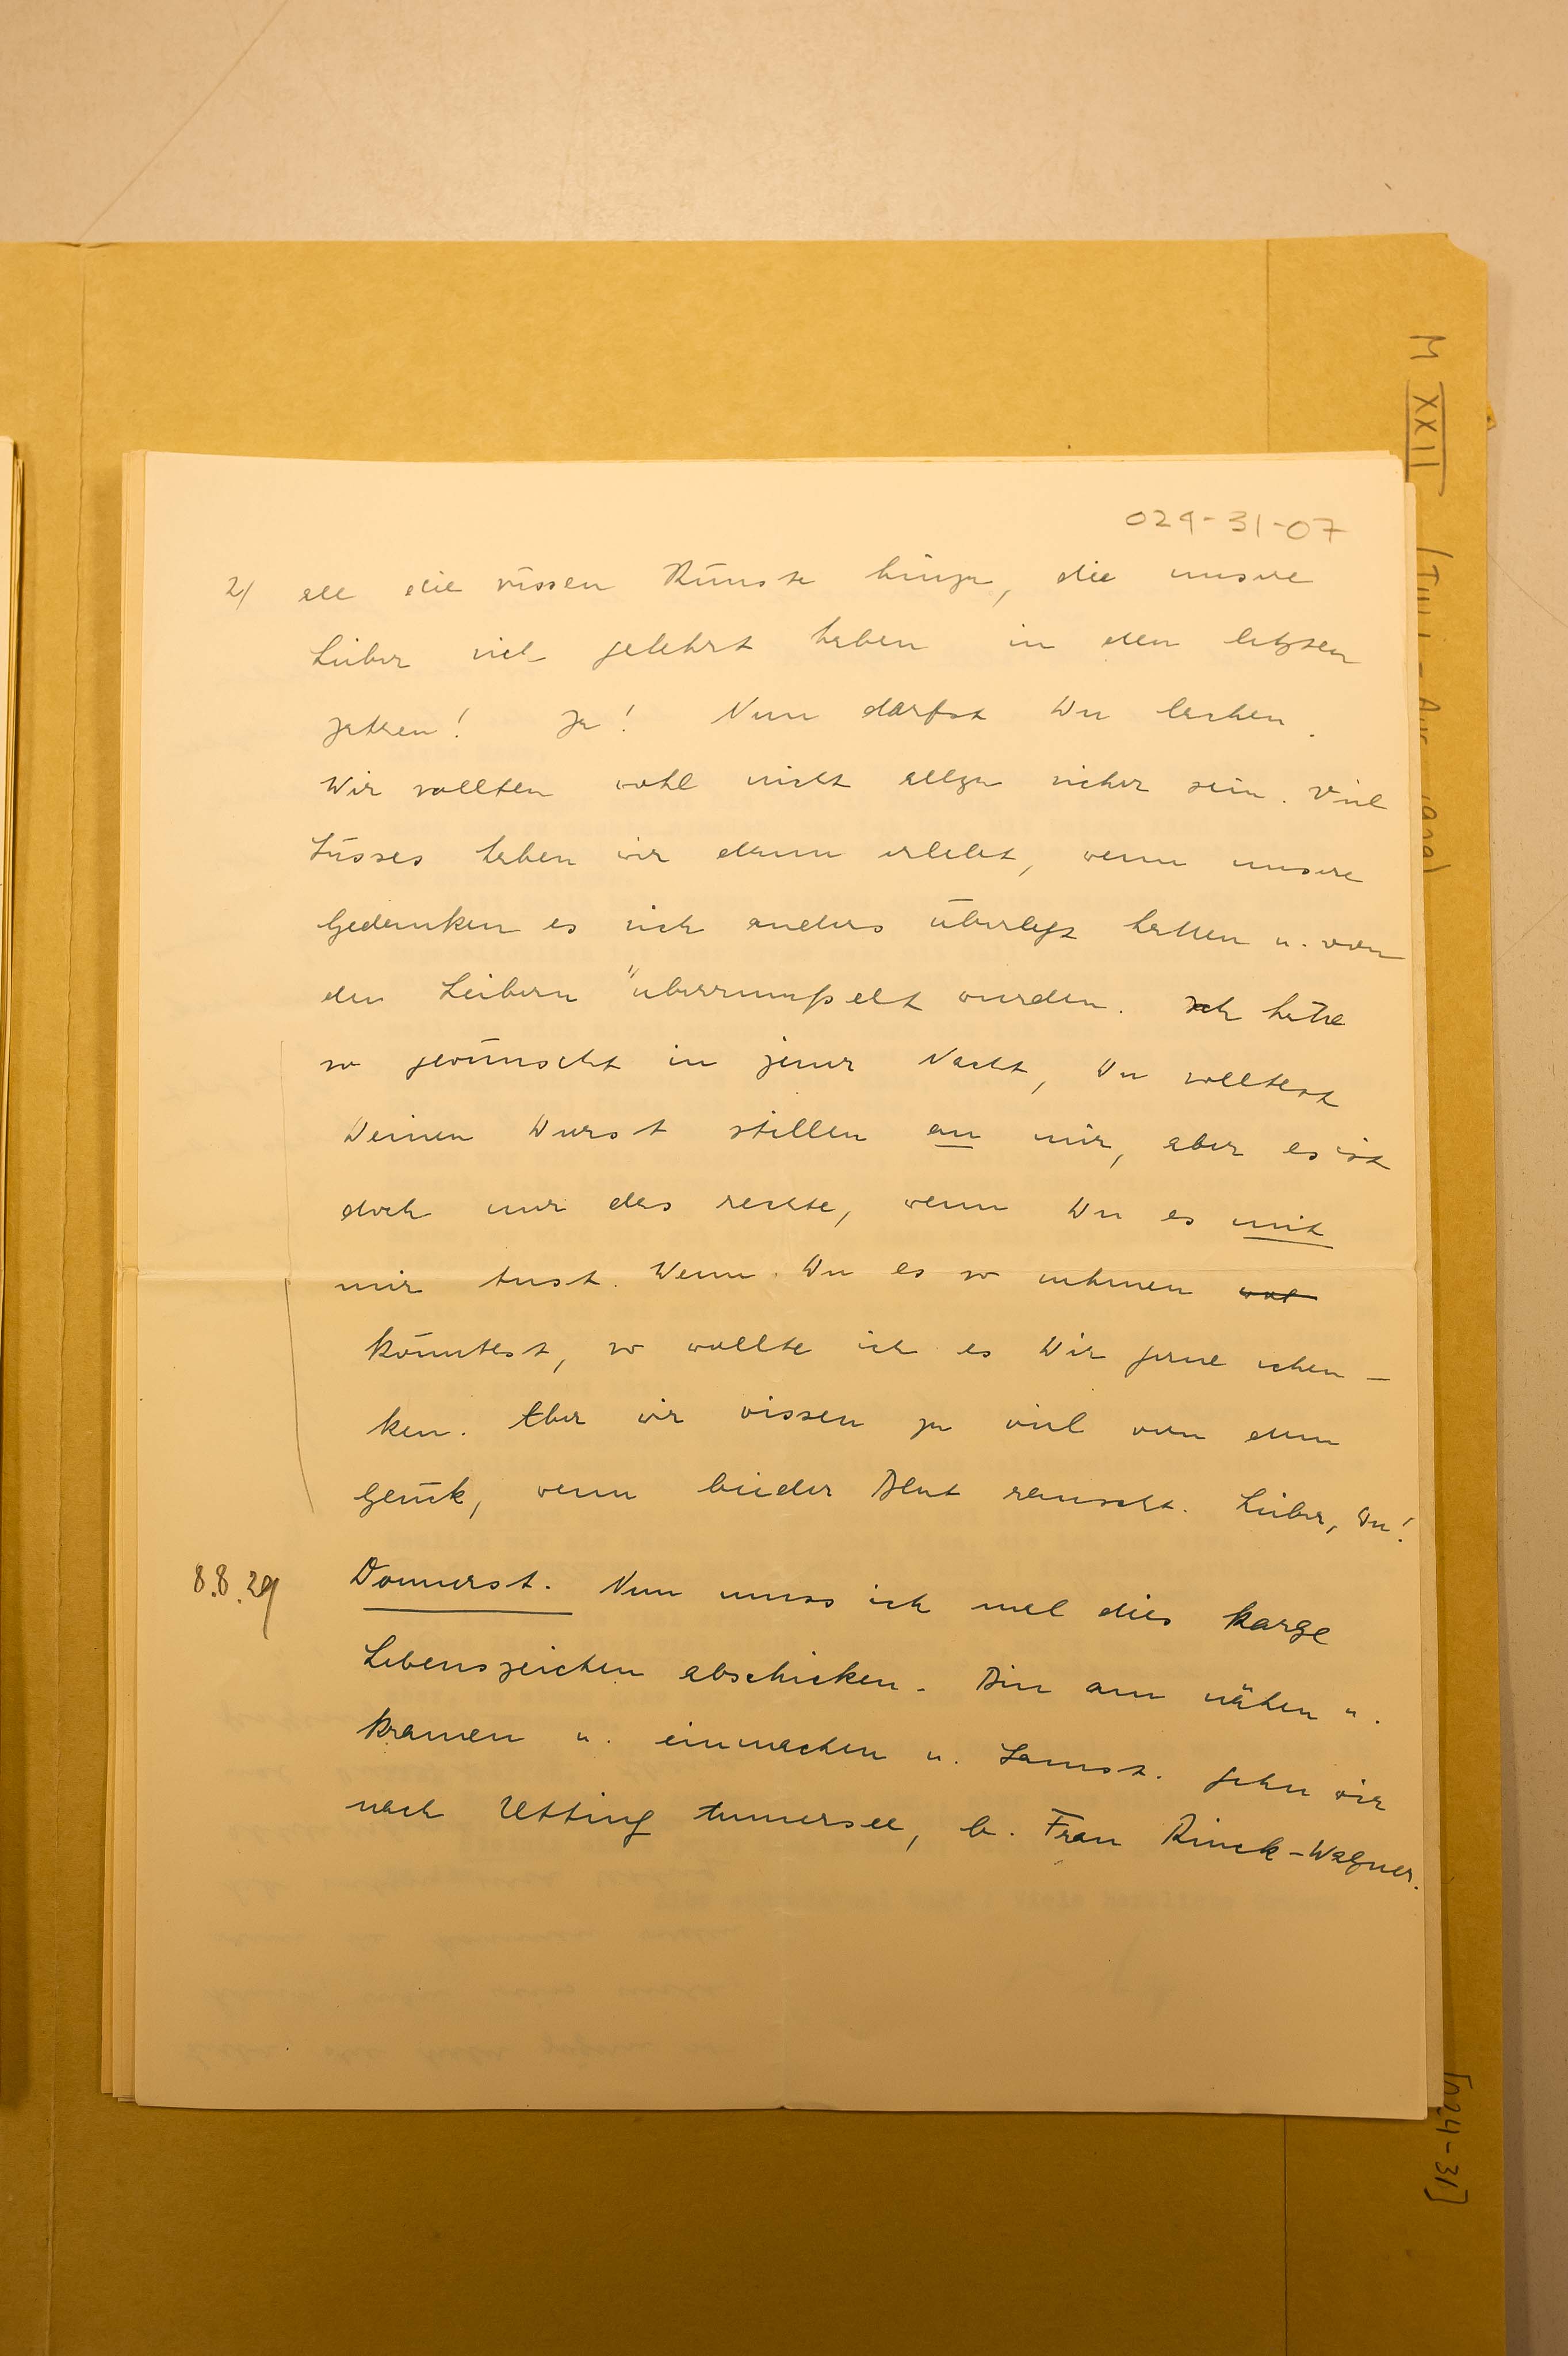 024-31-07
2) all die süssen Künste hinzu, die unsere
Leiber viel gelehrt haben in den letzten
Jahren! Ja! Nun darfst Du lachen.
Wir sollten wohl nicht allzu sicher sein. Viel
Süsses haben wir dann erlebt, wenn unsere
Gedanken es sich anders überlegt hatten u. von
den Leibern überrumpelt wurden. Ich hatte
so gewünscht in jener Nacht, Du solltest
Deinen Durst stillen an mir, aber es ist
doch nur das rechte, wenn Du es mit
mir tust. Wenn Du es so nehmen
könntest, so wollte ich es Dir gerne schen-
ken. Aber wir wissen zu viel von dem
Glück, wenn beider Blut rauscht. Lieber, Du!
8.8.29 Donnerst. Nun muss ich mal dies karge
Lebenszeichen abschicken. Bin am nähen u.
kramen u. einmachen u. Samst. gehn wir
nach Utting Ammersee, b. Frau Rinck-Wagner.
M XXII
[024-31]